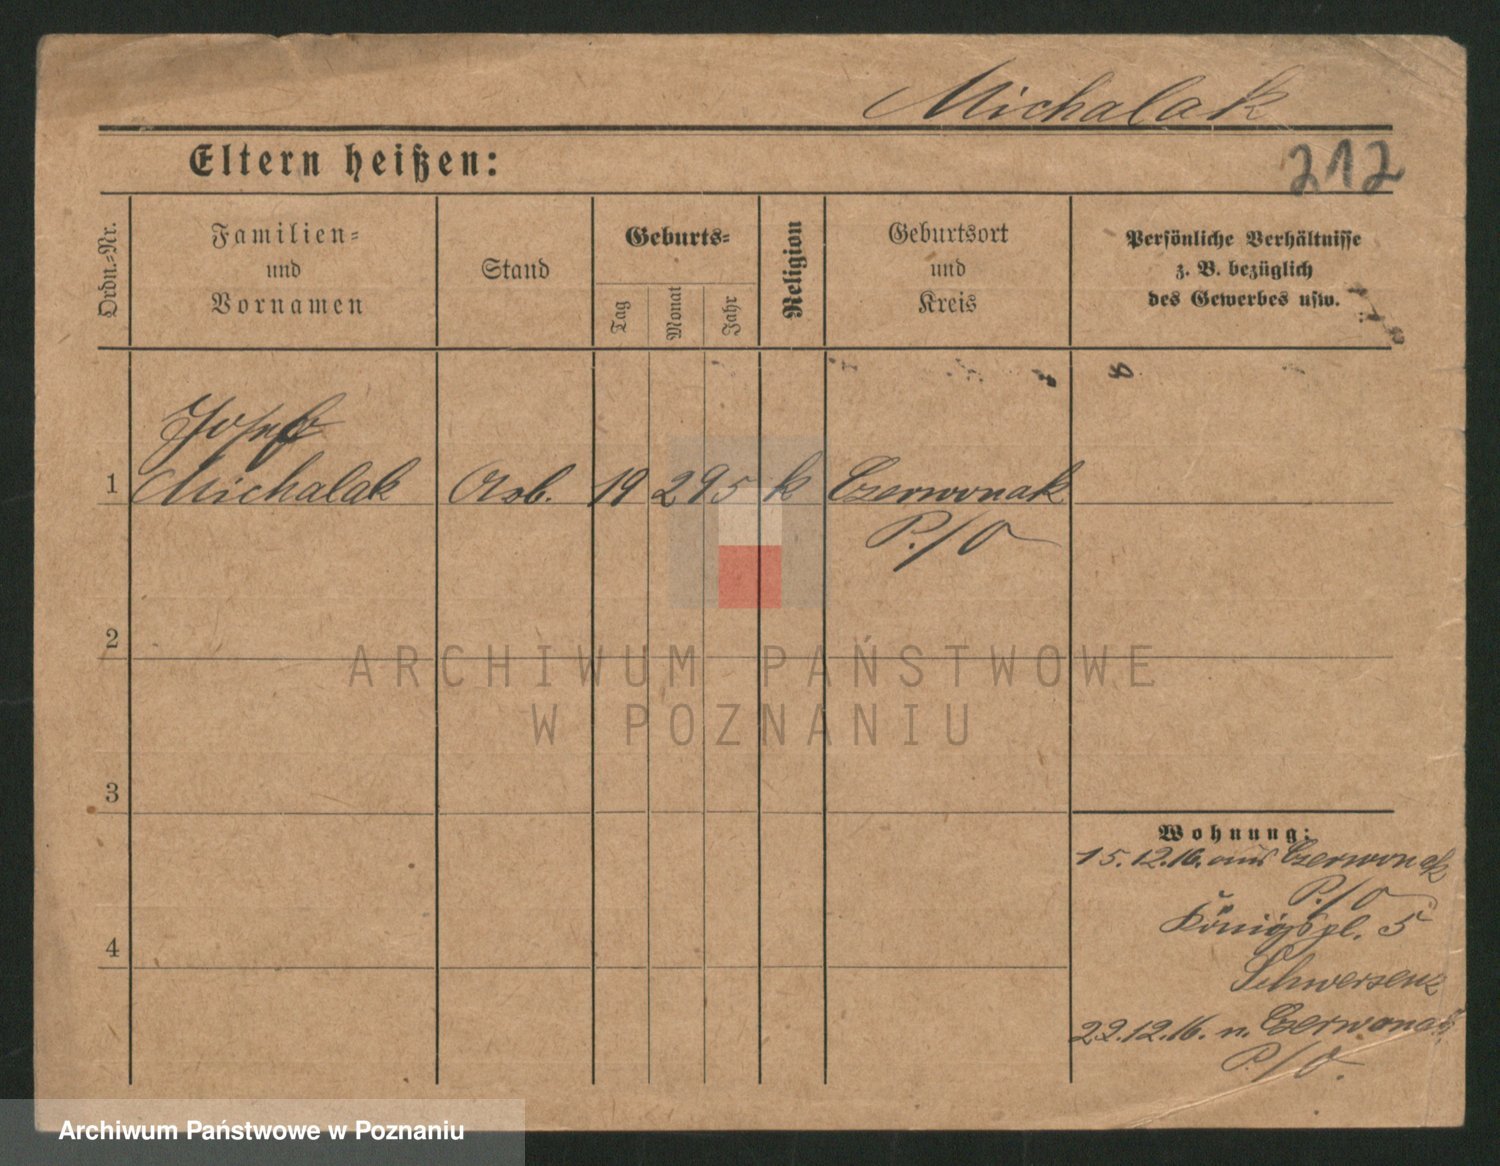 Michalak
Eltern heißen:
212
Ordn.-Nr.
Familien-
und
Vornamen
Stand
Geburts-
Tag
Monat
Jahr
Religion
Geburtsort
und
Kreis
Persönliche Verhältnisse
z. B. bezüglich
des Gewerbes usw.
Josef
1 Michalak Arb. 19 2 95 k Czerwonak
P./O
2
3
4
Wohnung:
15.12.16. aus Czerwonak
P./O
Königspl. 5
Schwersenz
22.12.16. n. Czerwonak
P./O.
ARCHIWUM PAŃSTWOWE
W POZNANIU
Archiwum Państwowe w Poznaniu